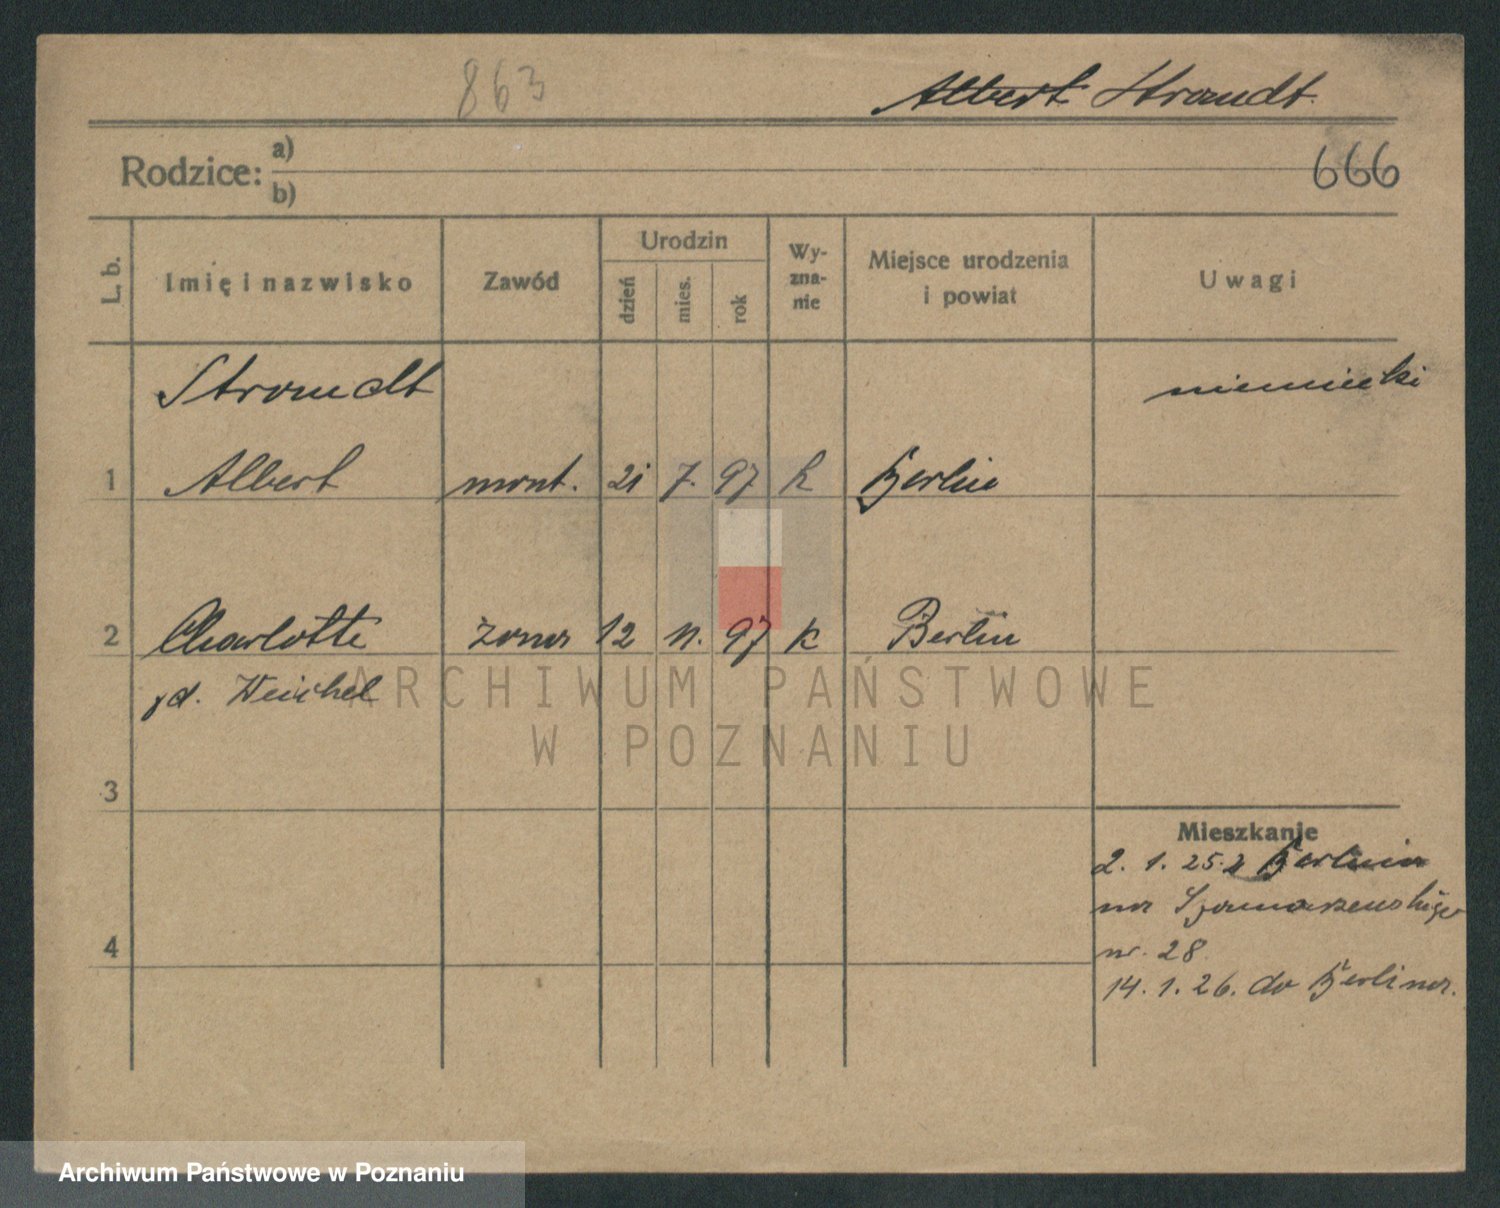 863
Albert Strandt.
Rodzice: a)
b)
666
L. b.
Imię i nazwisko
Zawód
Urodzin
dzień
mies.
rok
Wy-
zna-
nie
Miejsce urodzenia
i powiat
Uwagi
Strandt
niemiecki
1 Albert mont. 21 7. 97 k Berlin
2 Charlotte żona 12 11. 97 k Berlin
Weichel
ARCHIWUM PAŃSTWOWE
W POZNANIU
3
Mieszkanie
2. 1. 25. z Berlina
na Szamarzewskiego
4
nr. 28.
14. 1. 26. do Berlina.
Archiwum Państwowe w Poznaniu